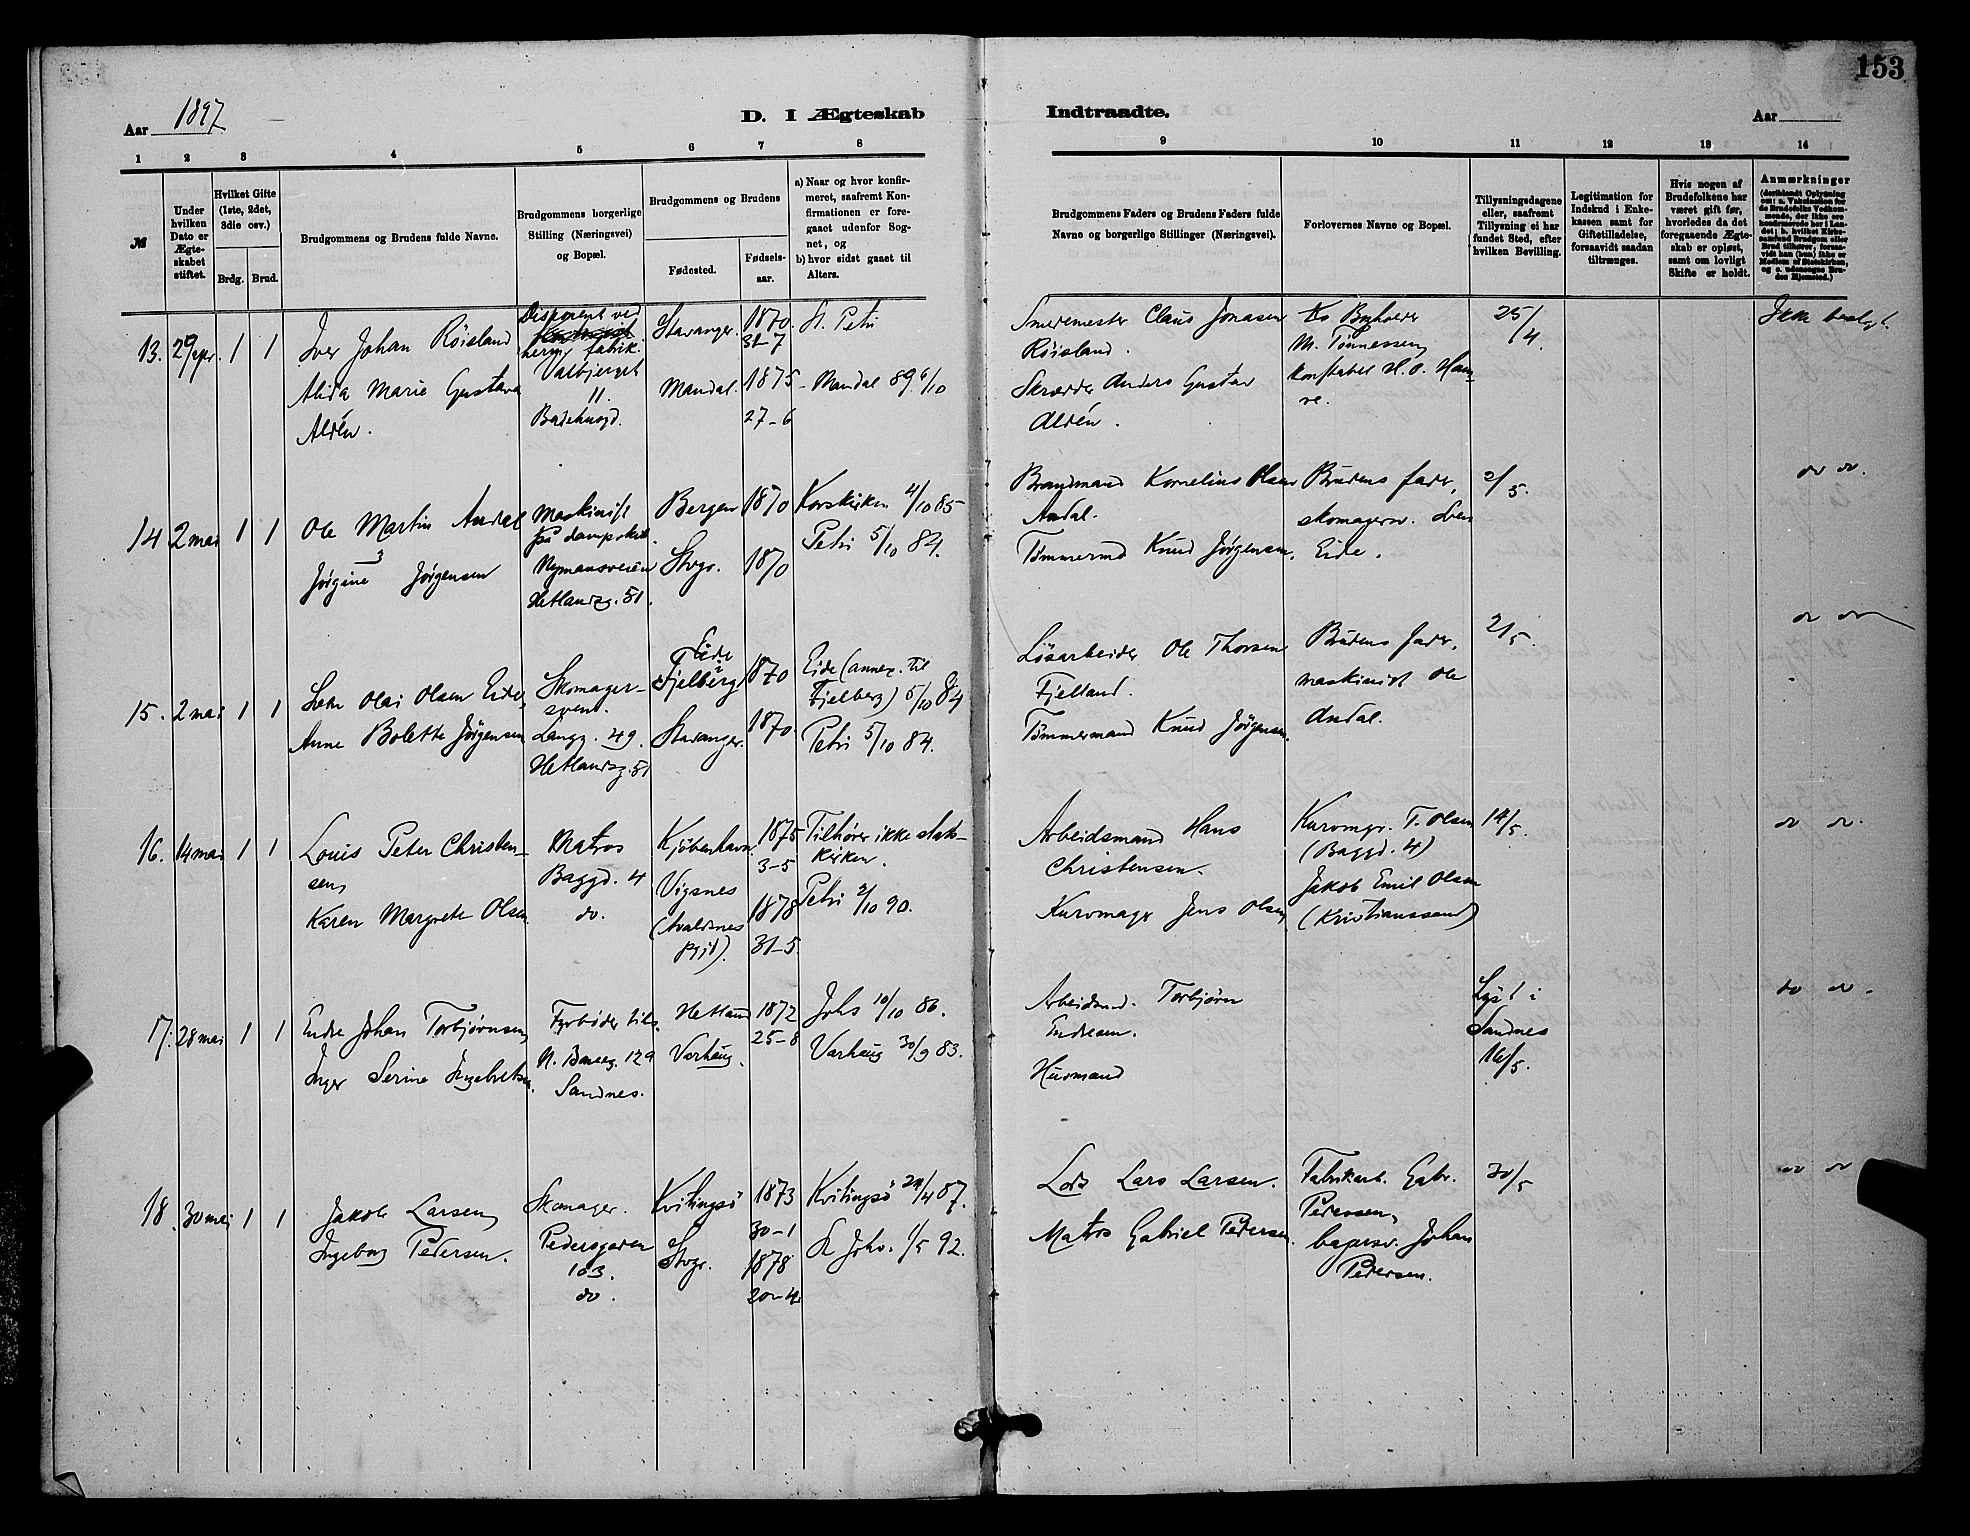 153
Aar 1897
D. I Ægteskab
Indtraadte.
Aar
1 2 3 4 5 6 7 8
9 10 11 12 13 14
№
Under hvilken Dato er Ægteskabet stiftet.
Hvilket Gifte (1ste, 2det, 3die osv.)
Brdg. Brud.
Brudgommens og Brudens fulde Navne.
Brudgommens borgerlige Stilling (Næringsvei) og Bopæl.
Brudgommens og Brudens
Fødested. Fødselsaar.
a) Naar og hvor konfirmeret, saafremt Konfirmationen er foregaaet udenfor Sognet, og
b) hvor sidst gaaet til Alters.
Brudgommens Faders og Brudens Faders fulde Navne og borgerlige Stillinger (Næringsvei).
Forlovernes Navne og Bopæl.
Tillysningsdagene eller, saafremt Tillysning ei har fundet Sted, efter hvilken Bevilling.
Legitimation for Indskud i Enkekassen samt for Giftetilladelse, forsaavidt saadan tiltrænges.
Hvis nogen af Brudefolkene har været gift før, hvorledes da det foregaaende Ægteskab er opløst, samt om lovligt Skifte er holdt.
Anmærkninger
13. 29 apr. 1 1
Iver Johan Röisland
Alida Marie Gustava
Aldén.
Disponent ved
herm. fabrik.
Valbjerget
11.
Badehusgd.
Stavanger. 1870.
31-7
Mandal. 1875
27-6
St. Petri
Mandal 89 6/10
Smedemester Claus Jonasen
Röisland.
Skrædder Anders Gustav
Aldén.
M. Tönnessen,
Konstabel H. O. Han-
25/4.
Ikke beslægt.
14 2 mai 1 1
Ole Martin Andal
Jørgine Jørgensen
Maskinist
på dampskib.
Nymansveien
Hetlandsg. 51.
Bergen 1870
Stvgr. 1870
Korskirken 4/10 85
Petri 5/10 84.
Brandmand Kornelius Olsen
Andal.
Tømmermd Knud Jørgensen.
Brudens fader,
skomagersv.
Eide.
2/5.
do do.
15. 2 mai 1 1
Olai Olsen Eide,
Anne Bolette Jørgensen
Skomager-
svend.
Langg. 49.
Hetlandsg. 51
Eide
i
Fjelberg 1870
Stavanger. 1870.
Eide (annex. til
Fjelberg) 5/10 84
Petri 5/10 84.
Løsarbeider Ole Thorsen
Fjelland.
Tømmermand Knud Jørgensen.
Brudens fader,
maskinist Ole
Andal.
2/5.
do do
16. 14 mai 1 1
Louis Peter Christen-
sen,
Karen Margrete Olsen.
Matros
Baggd. 4
do.
Kjøbenhavn. 1875
3-5
Vigsnes
(Avaldsnes
Pgjd). 1878
31-5
Tilhører ikke stats-
kirken.
Petri 2/10 90.
Arbeidsmand Hans
Christensen.
Kurvmager Jens Olsen,
Kurvmgr. T. Olsen
(Baggd. 4)
Jakob Emil Olsen
(Kristianssand)
14/5.
do do.
17. 28 mai 1 1
Endre Johan Torbjørnsen,
Inger Serine Ingebretsen.
Fyrbøder
129
Sandnes.
Hetland 1872
25-8
Varhaug.
Johs 10/10 86.
Varhaug 30/9 83.
Arbeidsmd. Torbjørn
Endresen.
Husmand
Lyst i
Sandnes
16/5.
do do.
18. 30 mai 1 1
Jakob Larsen,
Ingeborg Pedersen.
Skomager.
Pedersgaden
103.
do.
Kvitingsö 1873
30-1
Stvgr. 1878
20-4
Kvitingsö 24/4 87.
St Johs. 1/5 92.
Lods Lars Larsen.
Matros Gabriel Pedersen.
Fabrikarb. Gabr.
Pedersen,
bagersv. Johan
Pedersen.
30/5
do do